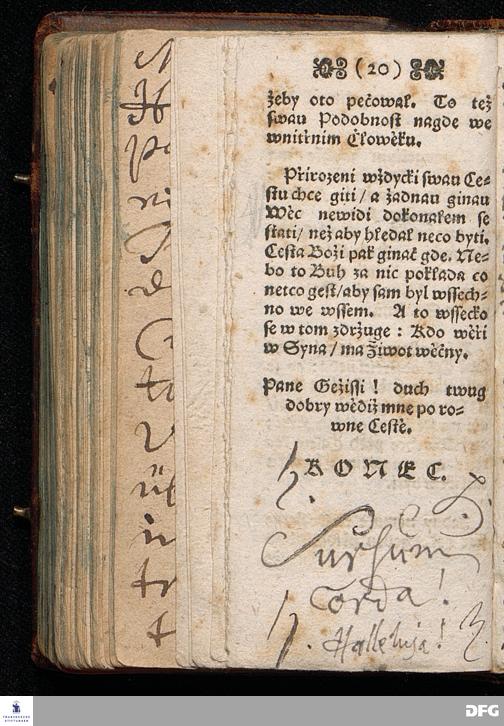 (20)
žeby oto pečowal. To tež
swau Podobnost nagde we
wnitřnim Čłowěku.
Přirozeni wždycki swau Ce=
stu chce giti / a žadnau ginau
Wěc newidi dokonalem se
stati / než aby hledal neco byti.
Cesta Boži pak ginač gde. Ne=
bo to Buh za nic pokłada co
netco gest / aby sam byl wssech=
no we wssem. A to wssecko
se w tom zdržuge : Kdo wěři
w Syna / ma Život wěčny.
Pane Gežissi ! duch twug
dobry wědiž mne po ro=
wne Cestě.
KONEC.
Sursum
corda!
Halleluja!
FRANCKESCHE
STIFTUNGEN
DFG